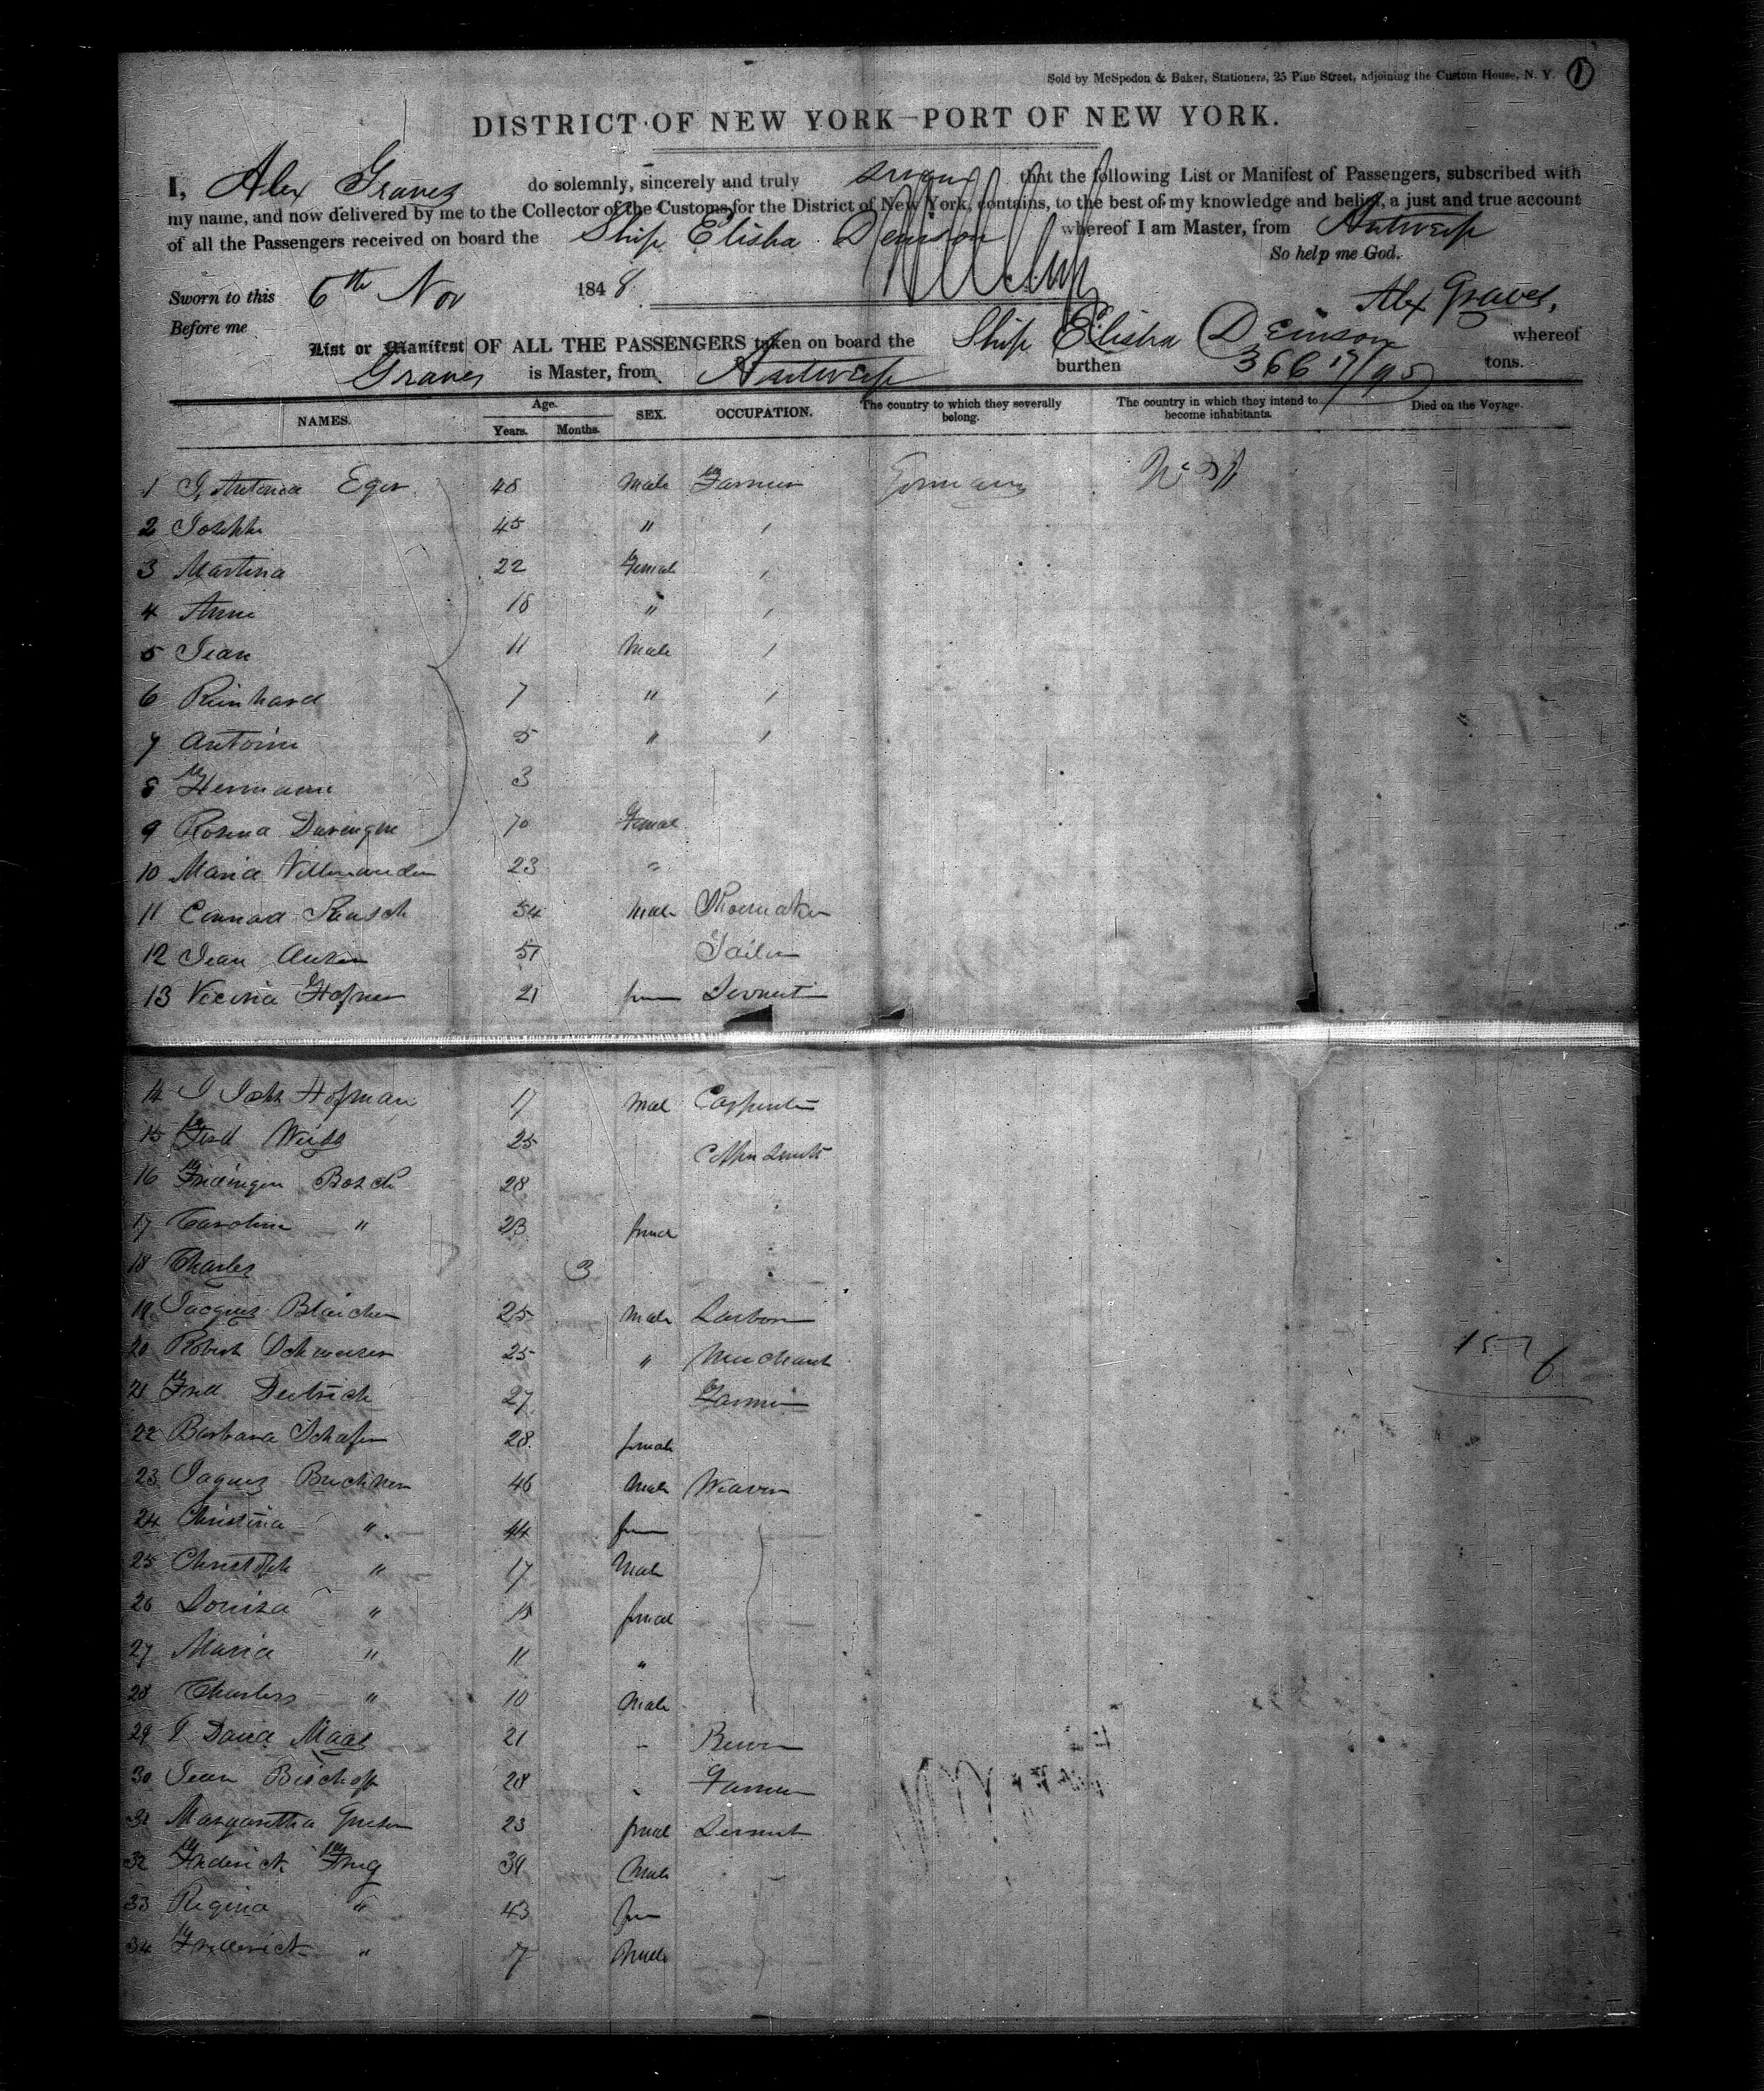 Sold by McSpedon & Baker, Stationers, 25 Pine Street, adjoining the Custom House, N. Y. 1
DISTRICT OF NEW YORK—PORT OF NEW YORK.
I, Alex Graves do solemnly, sincerely and truly swear that the following List or Manifest of Passengers, subscribed with
my name, and now delivered by me to the Collector of the Customs for the District of New York, contains, to the best of my knowledge and belief, a just and true account
of all the Passengers received on board the Ship Elisha Denison whereof I am Master, from Antwerp
So help me God.
Sworn to this 6th Nov 1848
Alex Graves,
Before me
List or Manifest OF ALL THE PASSENGERS taken on board the Ship Elisha Denison whereof
Graves is Master, from Antwerp burthen 366 17/95 tons.
NAMES. Age. Years. Months. SEX. OCCUPATION. The country to which they severally belong. The country in which they intend to become inhabitants. Died on the Voyage.
1 Eger Male Farmer Germany
2 45 "
3 Martina 22 Female
4 Anne "
5 Jean 11 Male
6 Reinhard 7 "
7 Antoine 5 "
8 Hermann 3
9 Rosina 70 Female
10 Maria 23 "
11 Conrad 54 Male Shoemaker
12 Jean Tailor
13 21 Servant
14 Hofman 17 Mal Carpenter
15 Fred Weiss 25 Coppersmith
16 Bosch 28
17 Caroline " 23
18 Charles 3
19 Jacques 25 Male
20 Robert 25 " Merchant
21 Fred Deitrich 27 Farmer
22 Barbara Schafer 28 female
23 Jaques Buchner 46 Male Weaver
24 Christina " 44 fem
25 Christoph " 17 Male
26 Louisa " 15
27 Maria " 11 "
28 Charles " 10 Male
29 David Maas 21
30 Jean Bischoff 28 Farmer
31 Margaretha 23 Servant
32 Frederick Male
33 Regina " 43 fem
34 Frederick " 7 Male